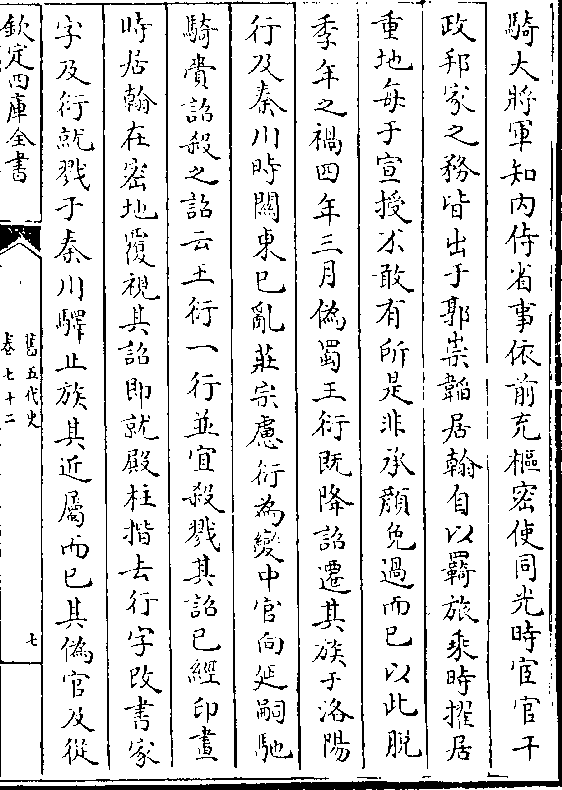 騎大將軍知内侍省事依前充樞密使同光時宦官干
政邦家之務皆出于郭崇韜居翰自以羇旅乘時擢居
重地每于宣授不敢有所是非承顔免過而已以此脱
季年之禍四年三月偽蜀王衍既降詔遷其族于洛陽
行及秦川時關東已亂莊宗慮衍為變中官向延嗣馳
騎賫詔殺之詔云王衍一行並宜殺戮其詔已經印畫
時居翰在密地覆視其詔即就殿柱揩去行字改書家
字及衍就戮于秦川驛止族其近屬而已其偽官及從
欽定四庫全書
舊五代史
卷七十二
七